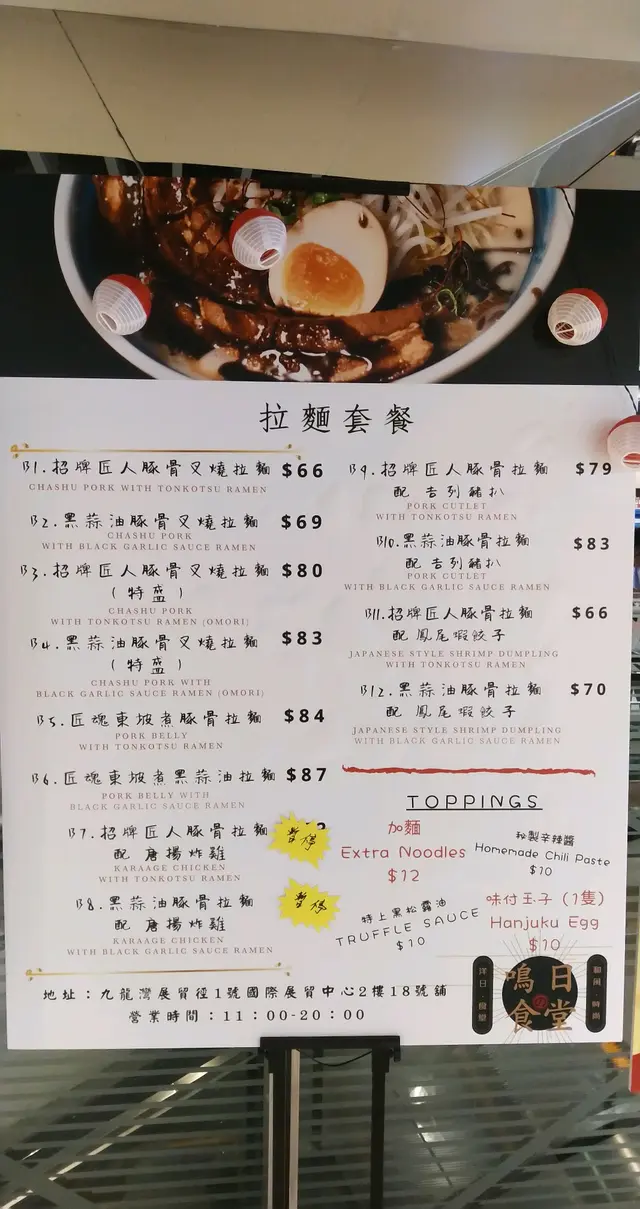 拉麵套餐
B1.招牌匠人豚骨叉燒拉麵 $66
CHASHU PORK WITH TONKOTSU RAMEN
B2.黑蒜油豚骨叉燒拉麵 $69
CHASHU PORK
WITH BLACK GARLIC SAUCE RAMEN
B3.招牌匠人豚骨叉燒拉麵 $80
(特盛)
CHASHU PORK
WITH TONKOTSU RAMEN (OMORI)
B4.黑蒜油豚骨叉燒拉麵 $83
(特盛)
CHASHU PORK WITH
BLACK GARLIC SAUCE RAMEN (OMORI)
B5.匠魂東坡煮豚骨拉麵 $84
PORK BELLY
WITH TONKOTSU RAMEN
B6.匠魂東坡煮黑蒜油拉麵 $87
PORK BELLY WITH
BLACK GARLIC SAUCE RAMEN
B7.招牌匠人豚骨拉麵
暫停
配 唐揚炸雞
KARAAGE CHICKEN
WITH TONKOTSU RAMEN
B8.黑蒜油豚骨拉麵
暫停
配 唐揚炸雞
KARAAGE CHICKEN
WITH BLACK GARLIC SAUCE RAMEN
B9.招牌匠人豚骨拉麵 $79
配 吉列豬扒
PORK CUTLET
WITH TONKOTSU RAMEN
B10.黑蒜油豚骨拉麵 $83
配 吉列豬扒
PORK CUTLET
WITH BLACK GARLIC SAUCE RAMEN
B11.招牌匠人豚骨拉麵 $66
配 鳳尾蝦餃子
JAPANESE STYLE SHRIMP DUMPLING
WITH TONKOTSU RAMEN
B12.黑蒜油豚骨拉麵 $70
配 鳳尾蝦餃子
JAPANESE STYLE SHRIMP DUMPLING
WITH BLACK GARLIC SAUCE RAMEN
TOPPINGS
加麵
Extra Noodles
$12
秘製辛辣醬
Homemade Chili Paste
$10
特上黑松露油
TRUFFLE SAUCE
$10
味付玉子 (1隻)
Hanjuku Egg
$10
地址：九龍灣展貿徑1號國際展貿中心2樓18號舖
營業時間：11：00-20：00
鳴日
食堂